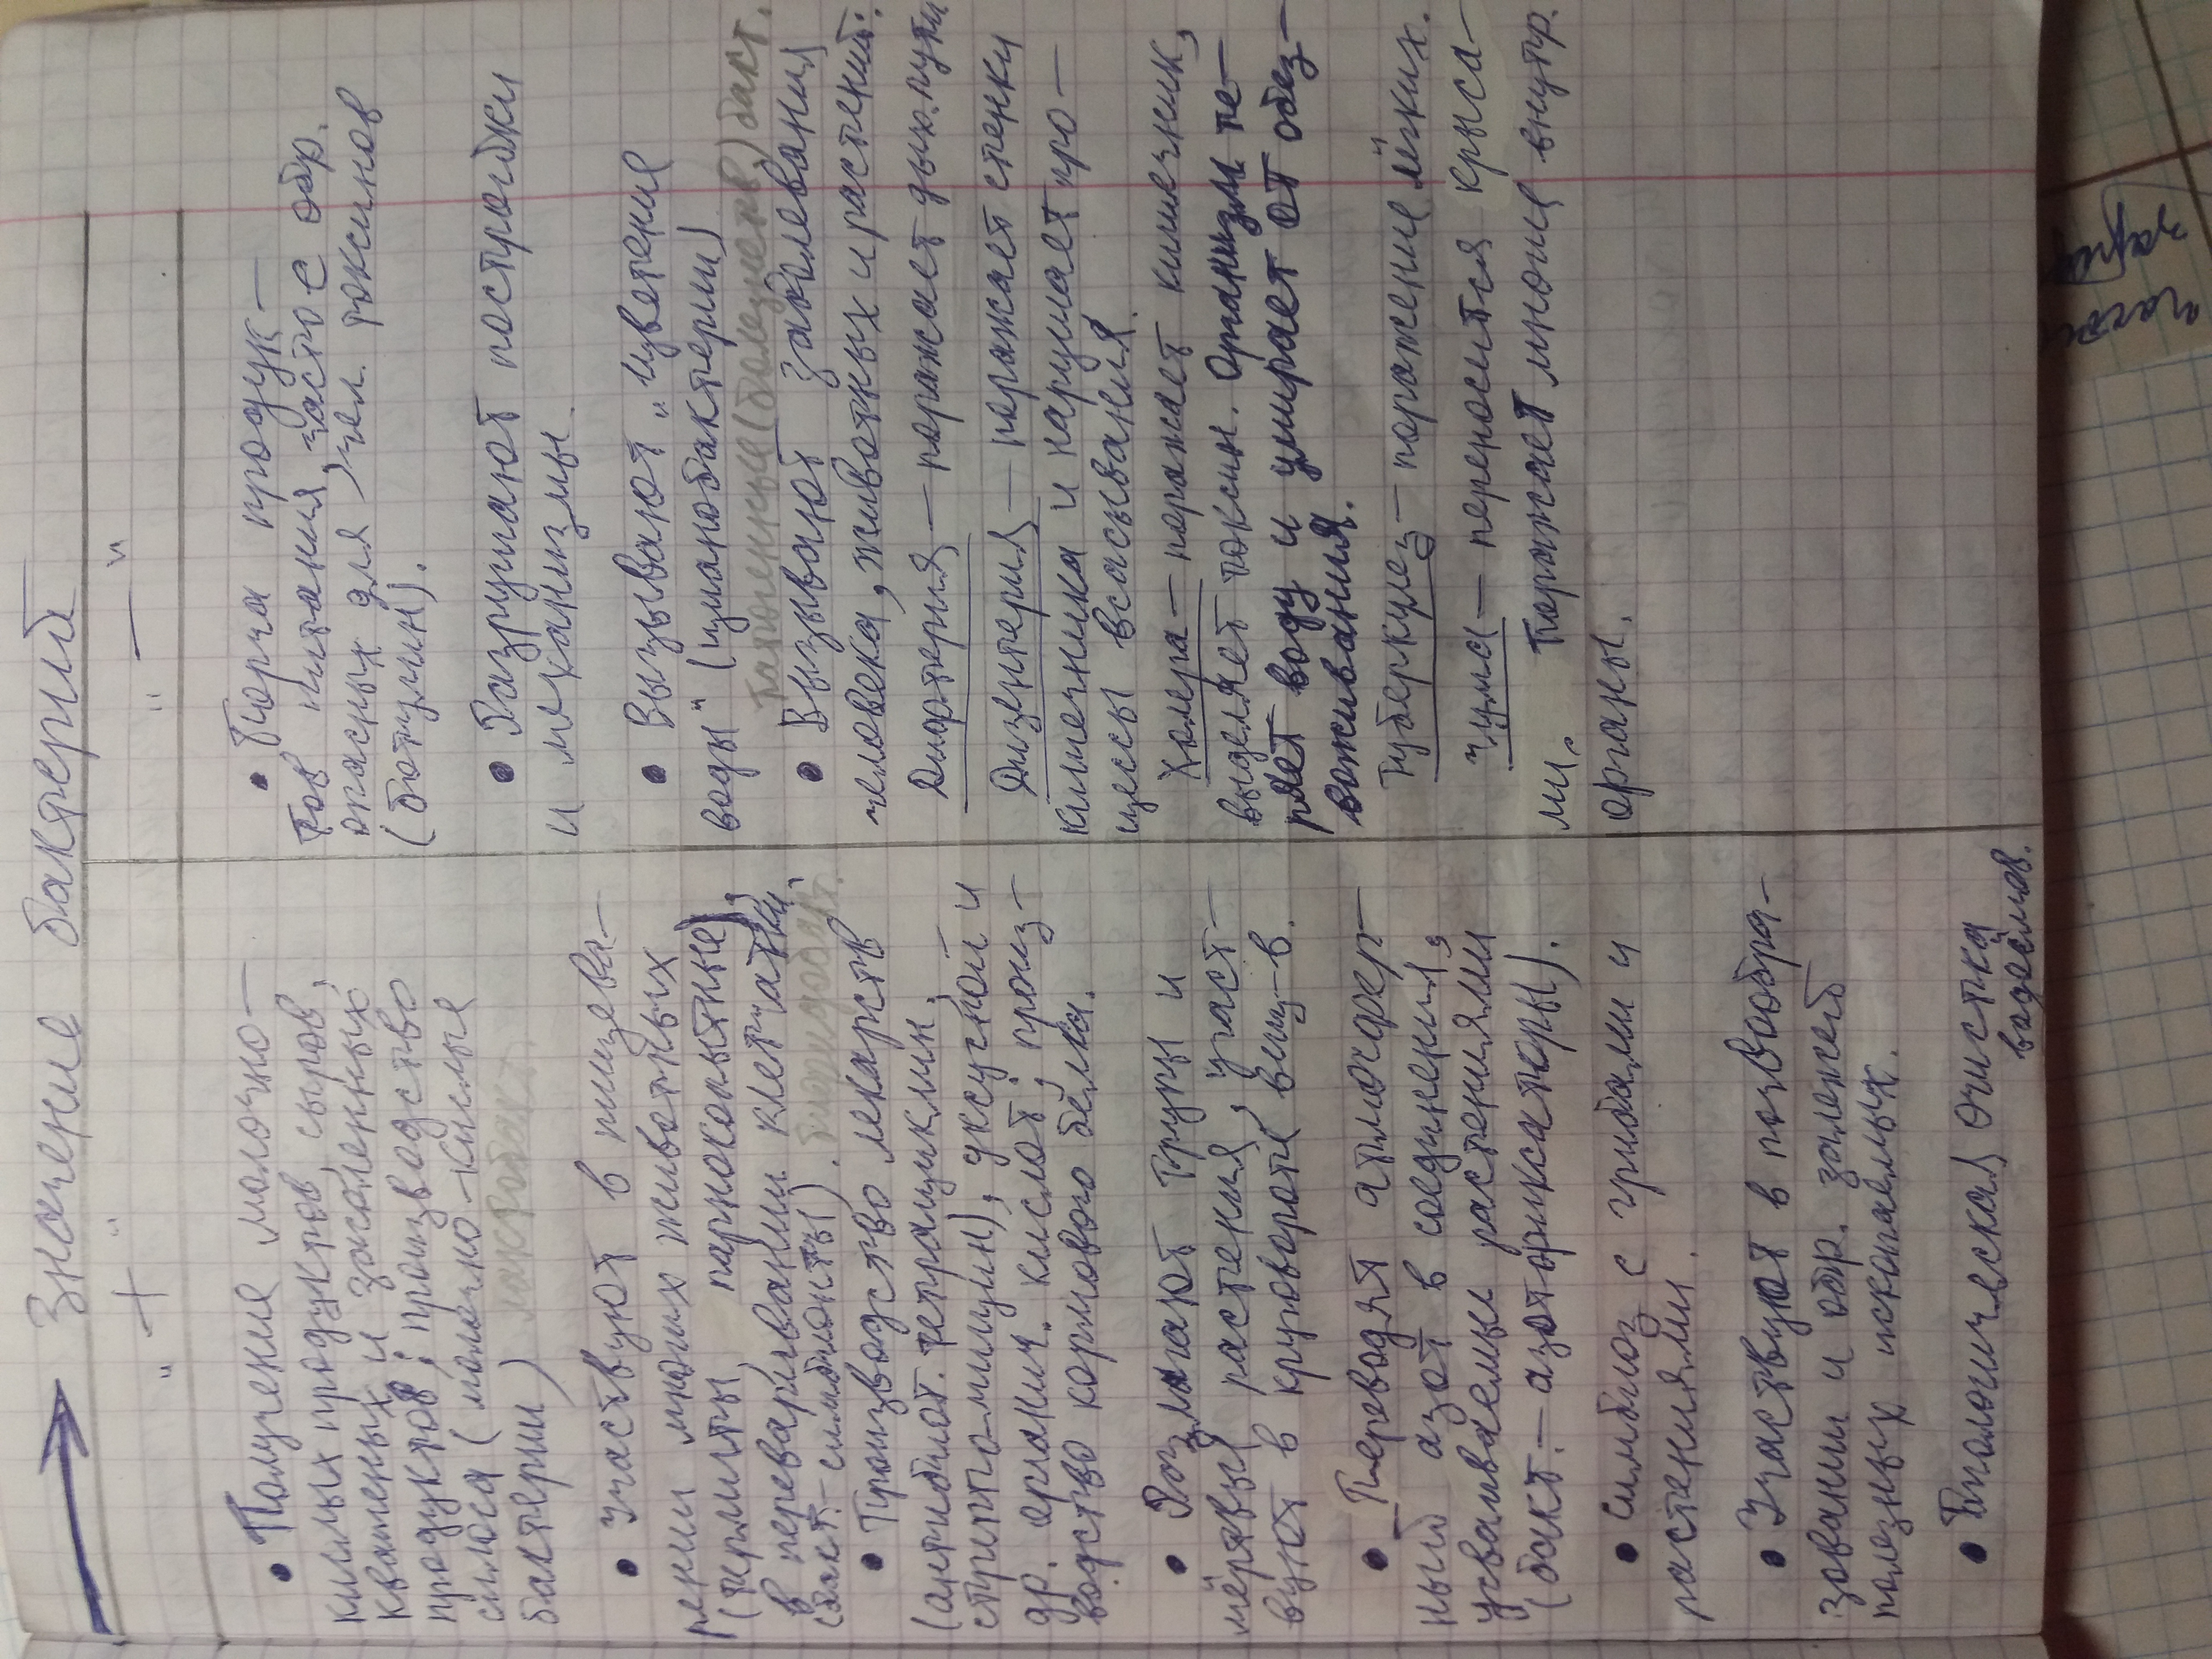 Значение бактерий
"+"
• Получение молочно-
кислых продуктов, сыров,
квашеных и засоленных
продуктов; производство
силоса (молочно-кислые
бактерии) лактобакт.
• Участвуют в пищева-
рении многих животных
(термиты, парнокопытные),
в переваривании клетчатки,
(бакт.-симбионты). бифидобакт.
• Производство лекарств
(антибиот. тетрациклин,
стрепто-мицин), уксусной и
др. органич. кислот; произ-
водство кормового белка.
• Разлагают трупы и
мёртвые растения, участ-
вуют в круговороте вещ-в.
• Переводят атмосфер-
ный азот в соединения,
усваиваемые растениями
(бакт.-азотфиксаторы).
• Симбиоз с грибами и
растениями.
• Участвуют в почвообра-
зовании и обр. залежей
полезных ископаемых.
• Биологическая очистка
водоёмов.
"—"
• Порча продук-
тов питания, часто с обр.
опасных для чел. токсинов
(ботулин).
• Разрушают постройки
и механизмы.
• Вызывают "цветение
воды" (цианобактерии)
патогенные (болезнетв.) бакт.
• Вызывают заболевания
человека, животных и растений:
Дифтерия — поражает дых. пути
Дизентерия — поражает стенки
кишечника и нарушает про-
цессы всасывания.
Холера — поражает кишечник,
выделяет токсин. Организм те-
ряет воду и умирает от обез-
воживания.
Туберкулез — поражение лёгких.
Чума — переносится крыса-
ми. Поражает многие внутр.
органы.